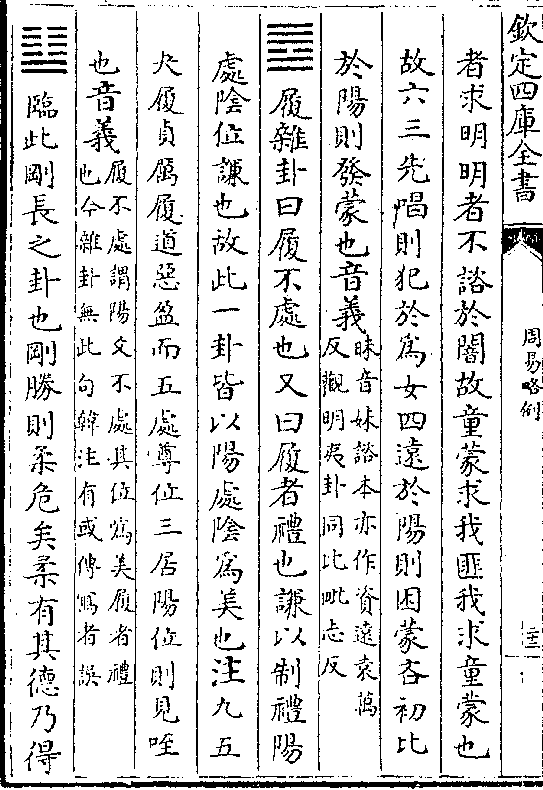 欽定四庫全書
周易略例
三
者求明明者不諮於闇故童蒙求我匪我求童蒙也
故六三先唱則犯於爲女四遠於陽則困蒙吝初比
於陽則發蒙也音義昧音妹諮本亦作資遠袁萬
反觀明夷卦同比毗志反
䷉履雜卦曰履不處也又曰履者禮也謙以制禮陽
處陰位謙也故此一卦皆以陽處陰爲美也注九五
夬履貞厲履道惡盈而五處尊位三居陽位則見咥
也音義履不處謂陽爻不處其位爲美履者禮
也今雜卦無此句韓注有或傳寫者誤
䷒臨此剛長之卦也剛勝則柔危矣柔有其德乃得